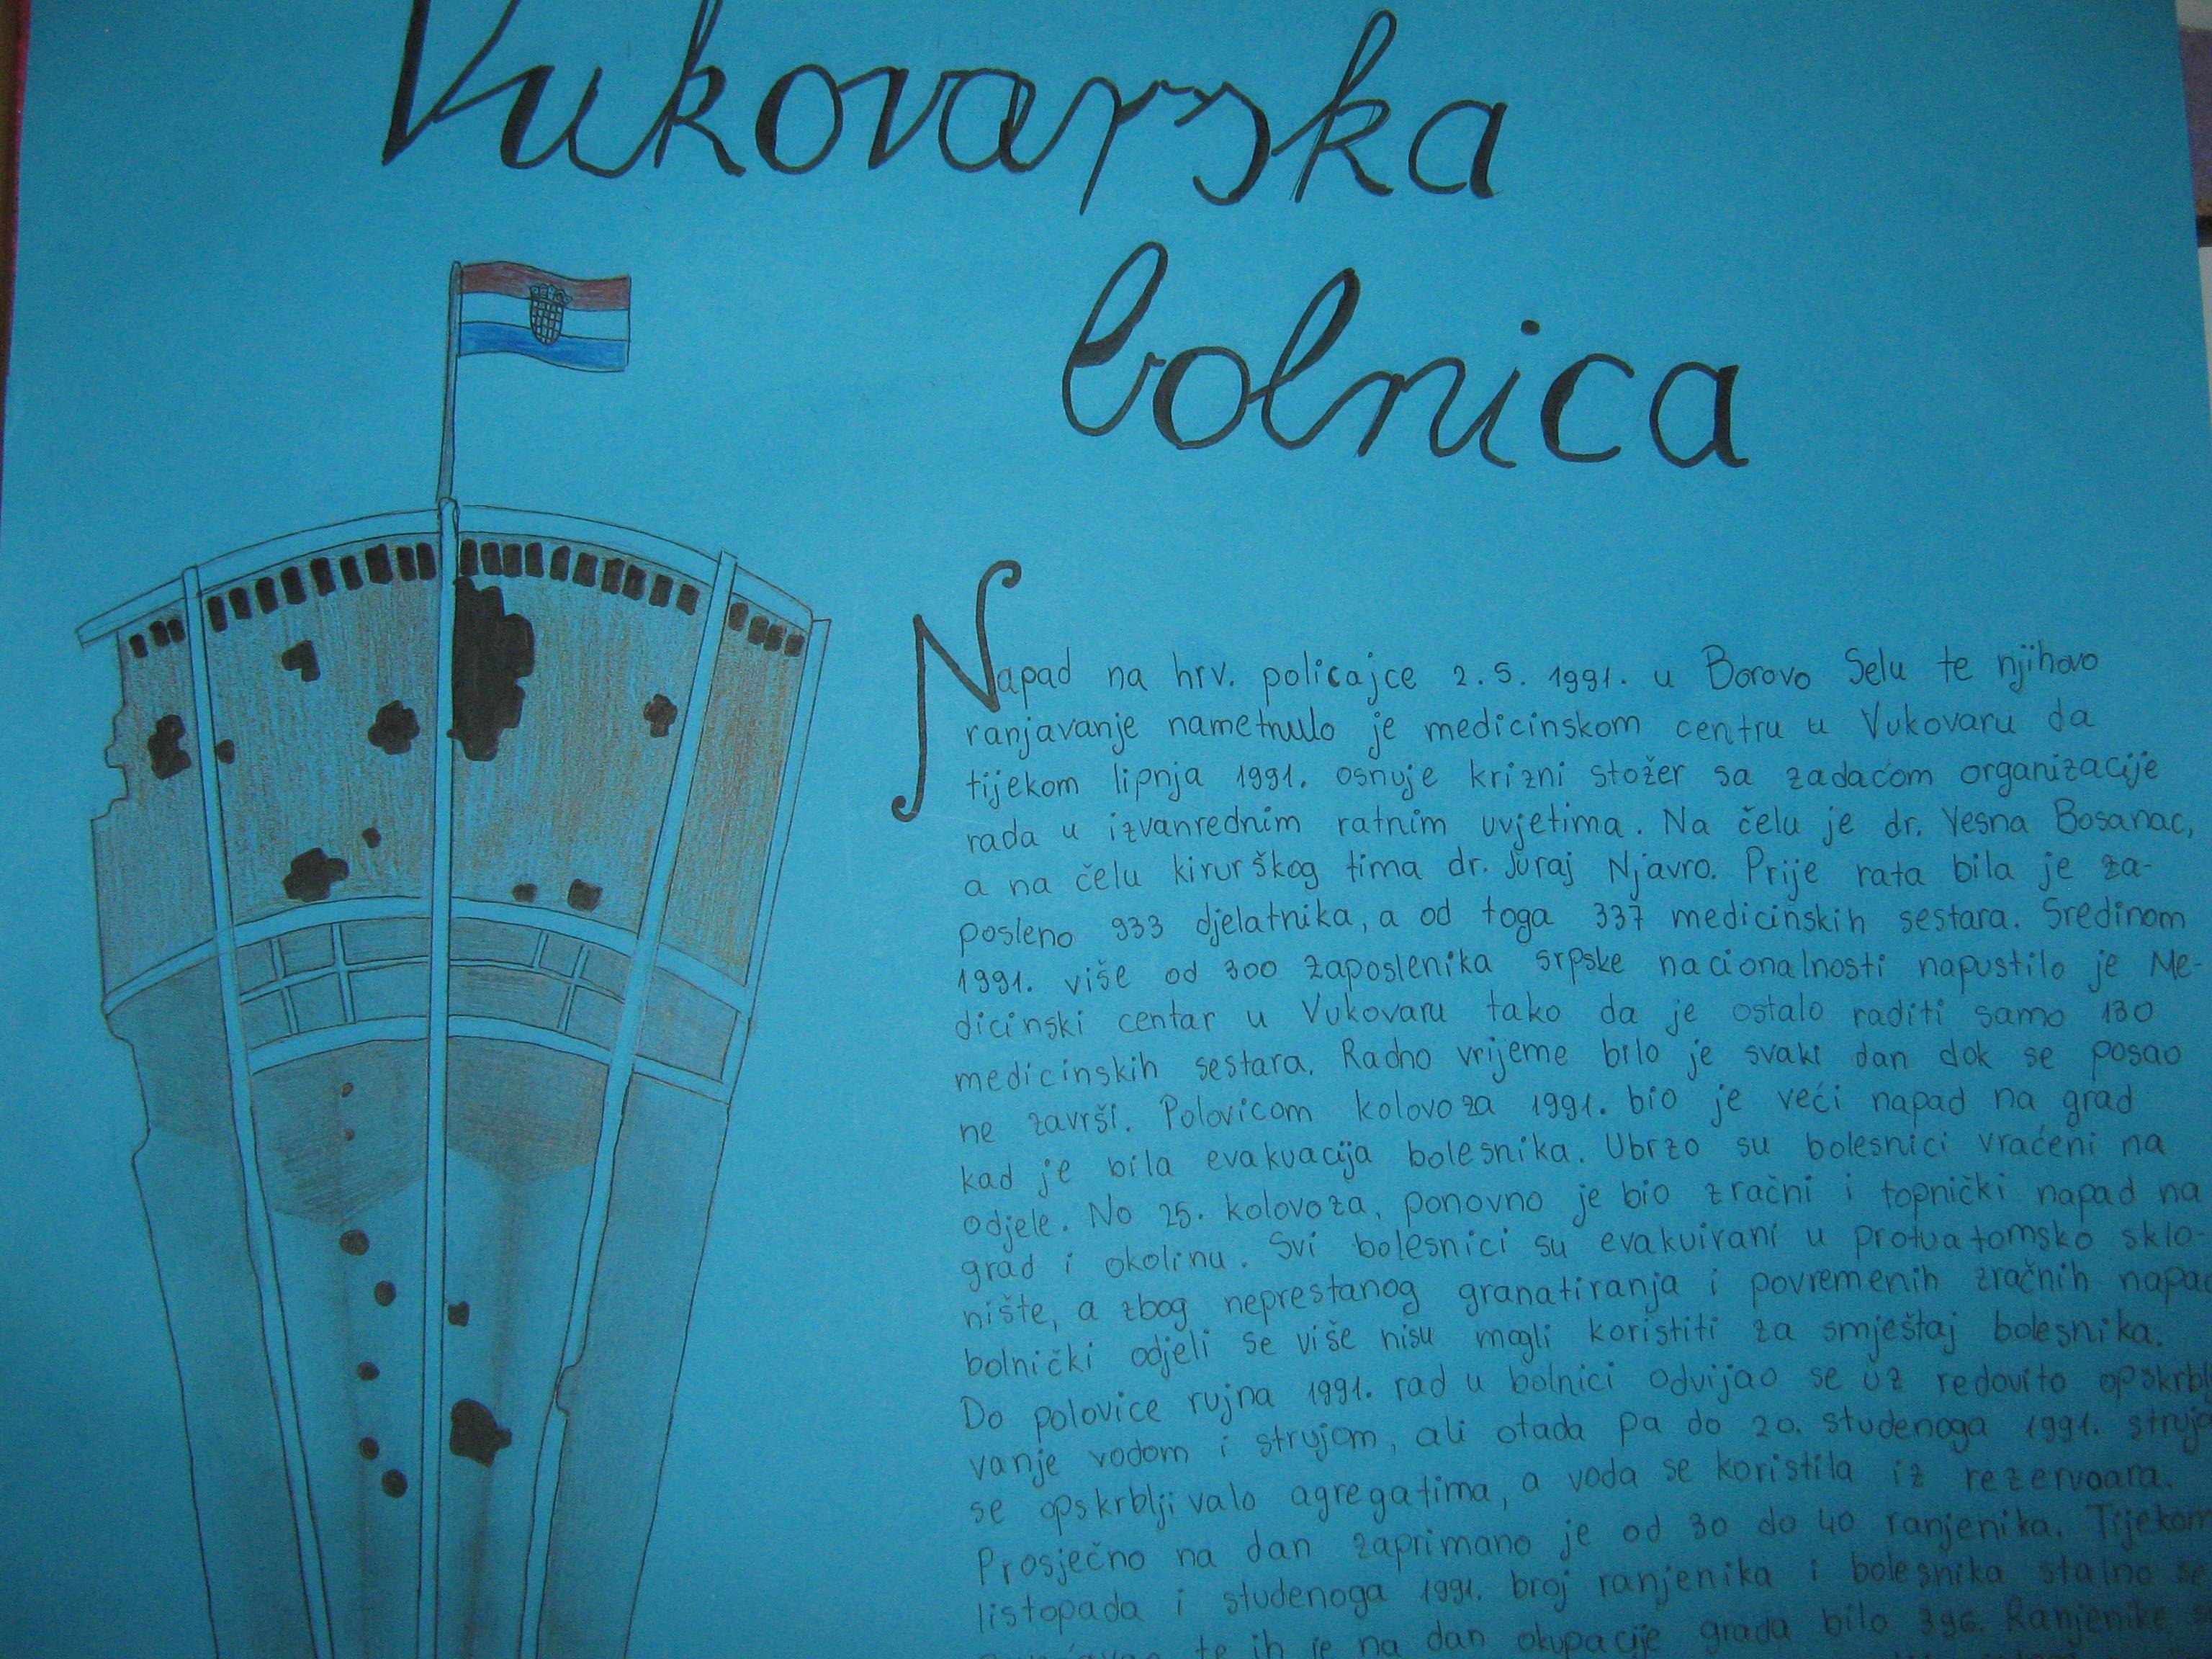 Vukovarska
bolnica
Napad na hrv. policajce 2.5. 1991. u Borovo Selu te njihovo
ranjavanje nametnulo je medicinskom centru u Vukovaru da
tijekom lipnja 1991. osnuje krizni stožer sa zadaćom organizacije
rada u izvanrednim ratnim uvjetima. Na čelu je dr. Vesna Bosanac,
a na čelu kirurškog tima dr. Juraj Njavro. Prije rata bila je za-
posleno 933 djelatnika, a od toga 337 medicinskih sestara. Sredinom
1991. više od 300 zaposlenika srpske nacionalnosti napustilo je Me-
dicinski centar u Vukovaru tako da je ostalo raditi samo 130
medicinskih sestara. Radno vrijeme bilo je svaki dan dok se posao
ne završi. Polovicom kolovoza 1991. bio je veći napad na grad
kad je bila evakuacija bolesnika. Ubrzo su bolesnici vraćeni na
odjele. No 25. kolovoza, ponovno je bio zračni i topnički napad na
grad i okolinu. Svi bolesnici su evakuirani u protuatomsko sklo-
nište, a zbog neprestanog granatiranja i povremenih zračnih napa
bolnički odjeli se više nisu mogli koristiti za smještaj bolesnika.
Do polovice rujna 1991. rad u bolnici odvijao se uz redovito opskrblj
vanje vodom i strujom, ali otada pa do 20. studenoga 1991. struja
se opskrbljivalo agregatima, a voda se koristila iz rezervoara.
Prosječno na dan zaprimano je od 30 do 40 ranjenika. Tijekom
listopada i studenoga 1991. broj ranjenika i bolesnika stalno se
te ih je na dan okupacije grada bilo 396. Ranjenike